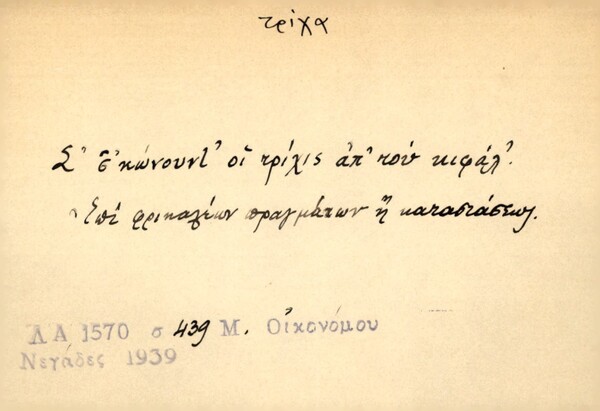 τρίχα
Σ' σ'κώνουντ' οἱ τρίχις ἀπ' τοὺ κιφάλ'.
Ἐπὶ φρικαλέων πραγμάτων ἢ καταστάσεως.
ΛΑ 1570 σ 439 Μ. Οἰκονόμου
Νεγάδες 1939